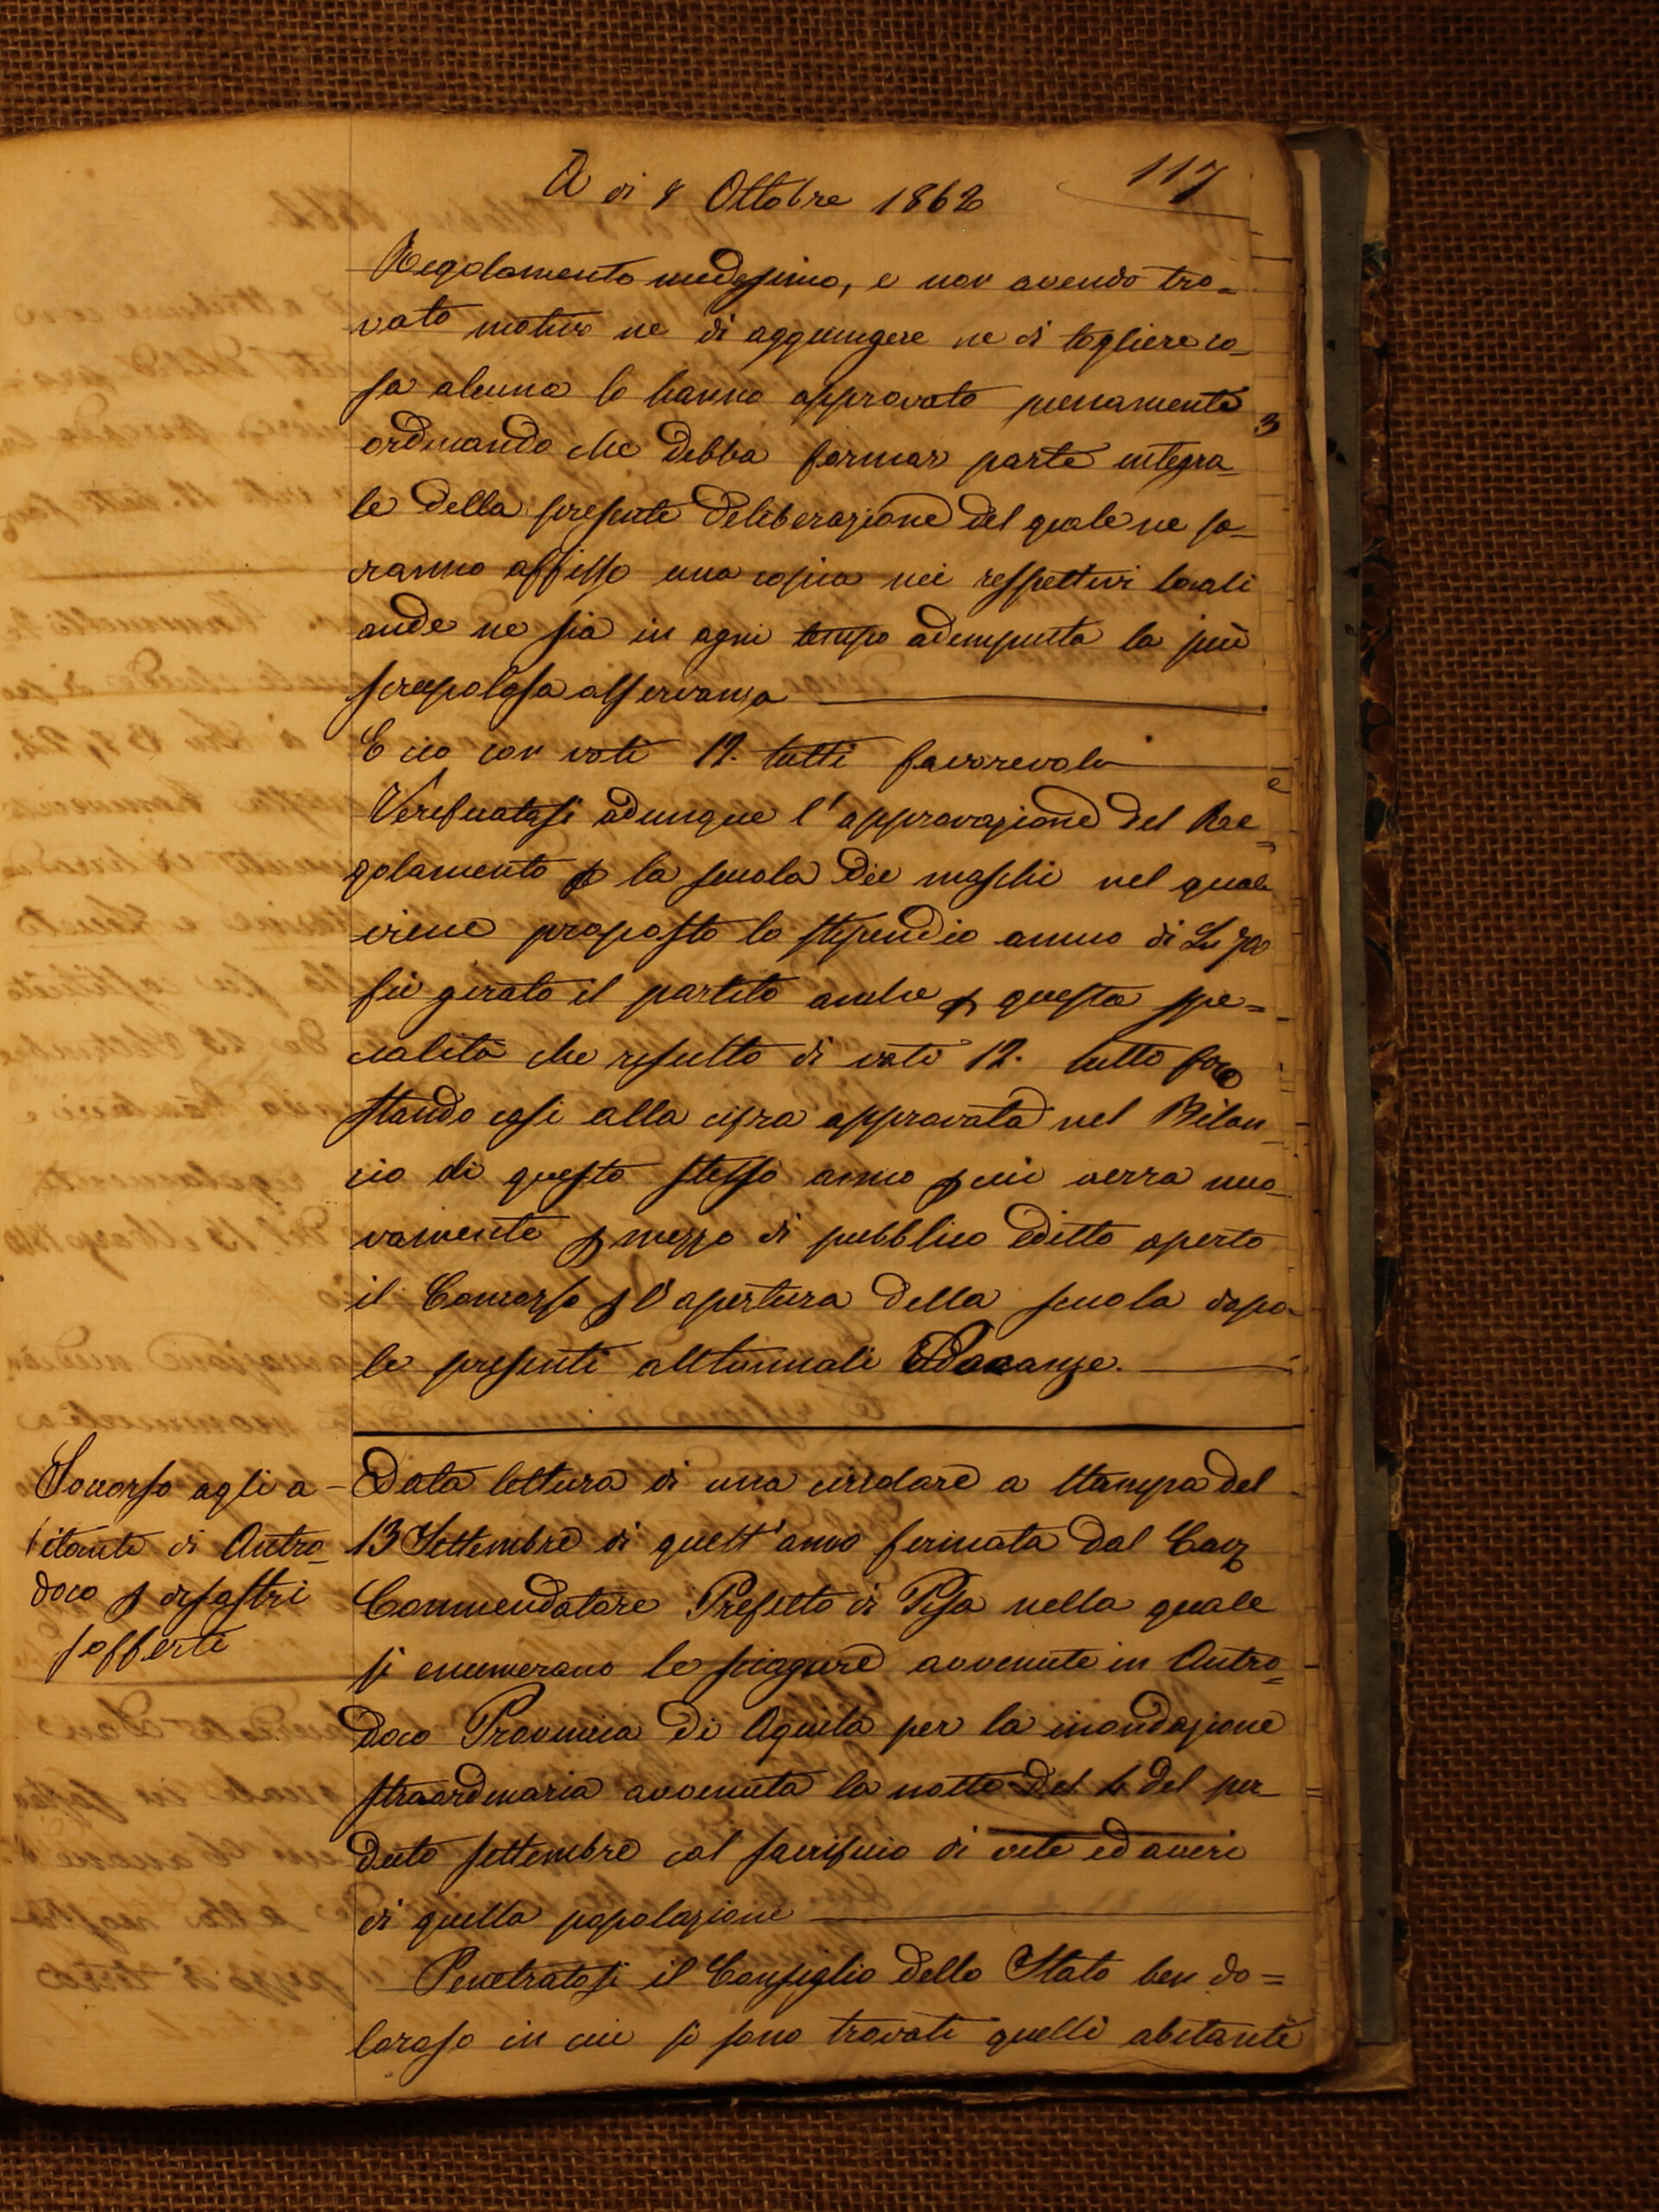 A di 8 Ottobre 1862
117
Regolamento medesimo, e non avendo tro-
vato motivo ne di aggiungere ne di togliere co-
sa alcuna lo hanno approvato pienamente
ordinando che debba formar parte integra-
le della presente deliberazione del quale ne sa-
ranno affisso una copia nei respettivi locali
onde ne sia in ogni tempo adempiuta la più
scrupolosa osservanza
E cio con voti 12. tutti favorevoli
Verificatasi adunque l'approvazione del Re=
golamento p la scuola dei maschi nel quale
viene proposto lo stipendio annuo di
fù girato il partito anche p questa spe=
cialità che resultò di voti 12. tutti favo
stando così alla cifra approvata nel Bilan-
cio di questo stesso anno p cui verra nuo-
vamente p mezzo di pubblico Editto aperto
il Concorso p l'apertura della scuola dopo
le presenti alltunnali Vacanze.
Soccorso agli a-
bitanti di Antro-
doco p disastri
sofferti
Data lettura di una circolare a stampa del
13 Settembre di quest'anno firmata dal Cav
Commendatore Prefetto di Pisa nella quale
si enumerano le sciagure avvenute in Antro=
doco Provincia di Aquila per la inondazione
straordinaria avvenuta la notte del del per-
duto settembre col sacrificio di vite ed averi
di quella popolazione
Penetratosi il Consiglio dello Stato ben do=
loroso in cui si sono trovati quelli abitanti